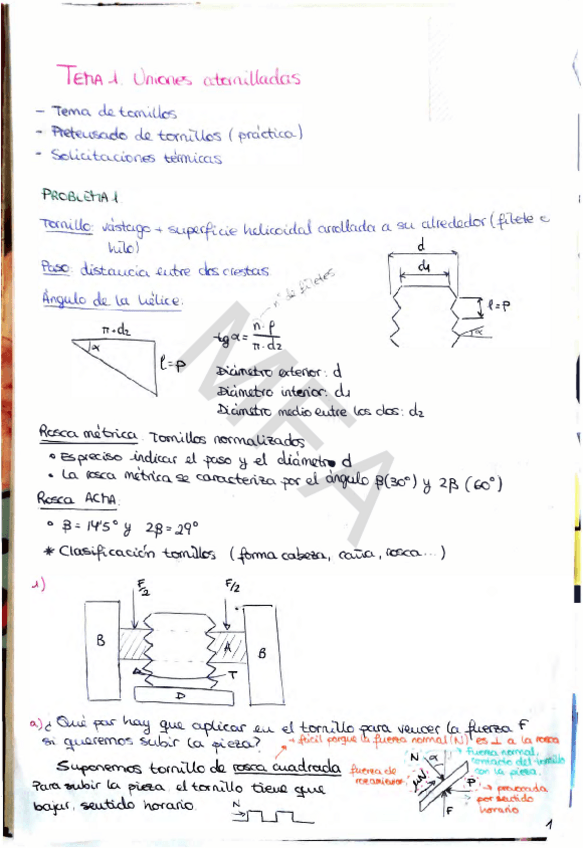 TEMA 1. Uniones atornilladas
- Tema de tornillos
- Pretensado de tornillos (práctica)
- Solicitaciones térmicas
PROBLEMA 1.
Tornillo: vástago + superficie helicoidal arrollada a su alrededor (filete o
hilo)
Paso: distancia entre dos crestas
Ángulo de la hélice:
d
d1
l=P
α
π·d2
α
l=P
nº de filetes
tgα = n·p / π·d2
Diámetro exterior: d
Diámetro interior: d1
Diámetro medio entre los dos: d2
MFA
Rosca métrica. Tornillos normalizados
• Es preciso indicar el paso y el diámetro d
• La rosca métrica se caracteriza por el ángulo β(30º) y 2β (60º)
Rosca ACME.
• β = 14'5º y 2β = 29º
* Clasificación tornillos (forma cabeza, caña, rosca...)
1)
F/2
F/2
B
A
B
T
D
a) ¿Qué par hay que aplicar en el tornillo para vencer la fuerza F
si queremos subir la pieza?
→ fácil porque la fuerza normal (N) es ⊥ a la rosca
Suponemos tornillo de rosca cuadrada
Para subir la pieza, el tornillo tiene que
bajar, sentido horario.
N
fuerza de
rozamiento
μN
N
α
→ Fuerza normal,
contacto del tornillo
con la pieza.
P
→ provocada
por sentido
horario
F
1